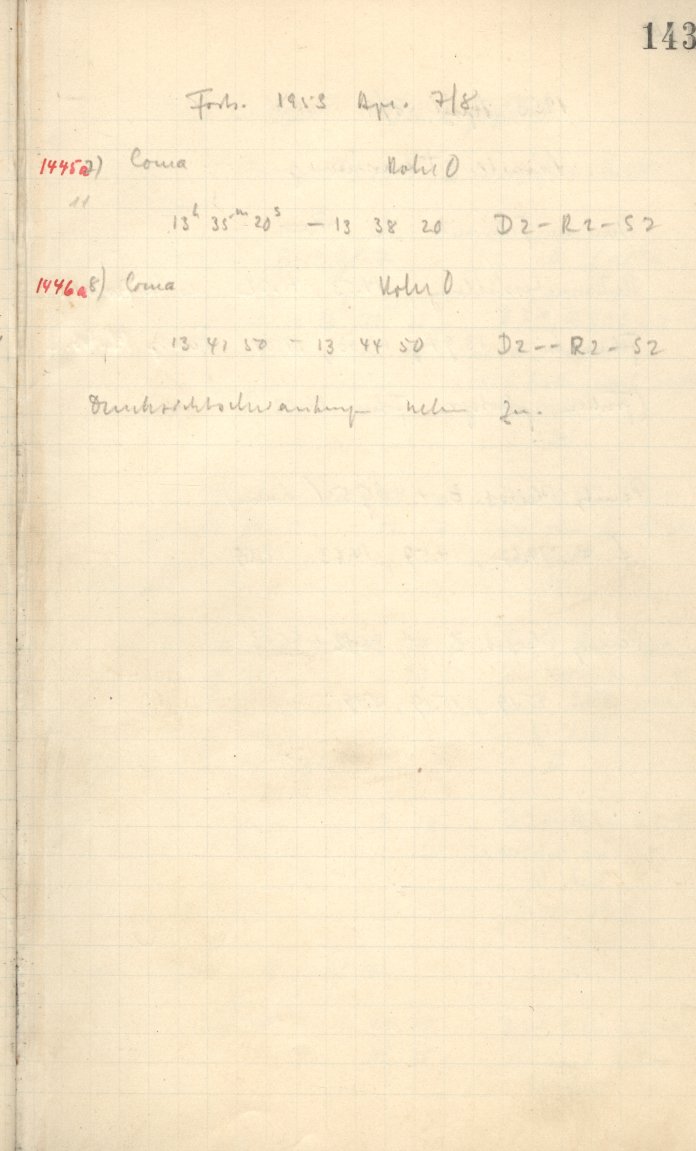 143
Forts. 1953 Apr. 7/8
1445a 7) Coma Rohr O
11
13h 35m 20s — 13 38 20 D2 – R2 – S2
1446a 8) Coma Rohr O
13 41 50 – 13 44 50 D2 -- R2 – S2
Durchsichtschwankungen nehmen zu.